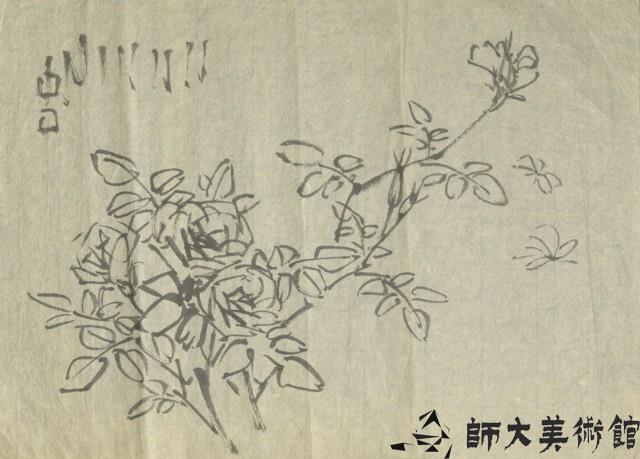 師大美術館